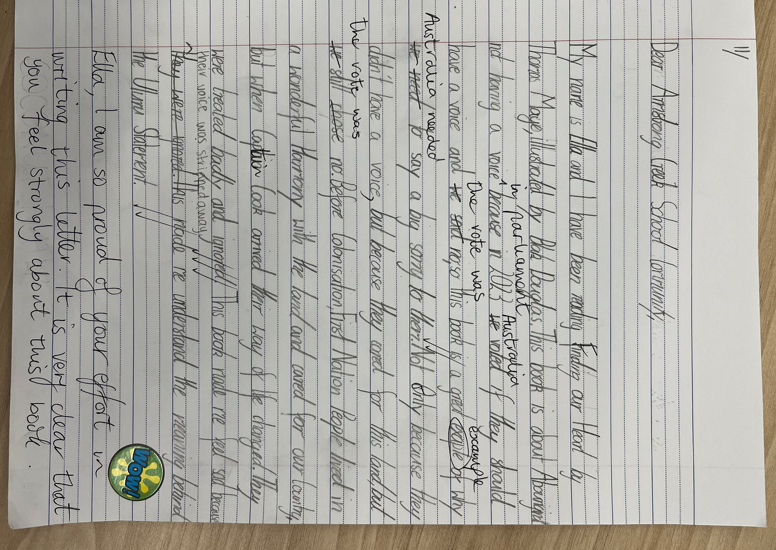 Dear Armstrong Creek School Community,
My name is Ella and I have been reading Finding our Heart by
Thomas Mayor, illustrated by Blak Douglas. This book is about Aboriginal
in parliament Australia
not having a voice because in 2023 he voted if they should
the vote was example
have a voice and he said no, so this book is a great by why
Australia needed
he need to say a big sorry to them. Not only because they
didn't have a voice, but because they cared for this land, but
the vote was
he still chose no. Before Colonisation, First Nation People lived in
a wonderful Harmony with the land and cared for our Country,
but when Captain Cook arrived their way of life changed. They
were treated badly and ignored. This book made me feel sad because
their voice was stripped away
they were ignored. This made me understand the meaning behind
the Uluru Statement.
Ella, I am so proud of your effort in
writing this letter. It is very clear that
you feel strongly about this book.
WOW!